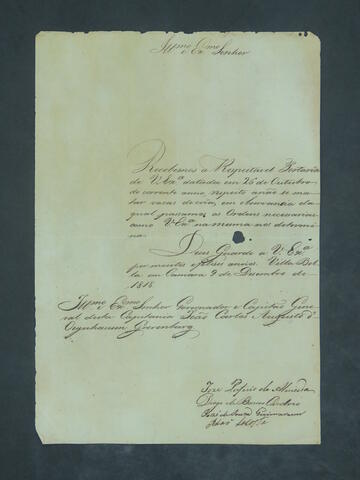 Illmo e Exmo Senhor
Recebemos a Respeitavel Portaria
de V. Exa datada em 26 de Outubro
do corrente anno, respeito anão se ma-
tar vacas de cria, em observancia da
qual passamos as Ordens necessarias
como V. Exa na mesma nos determi-
na.
Deus Guarde a V. Exa
por muitos e felises annos. Villa Bel-
la em Camara 9 de Dezembro de
1818
Illmo e Exmo Senhor Governador e Capitão Gene-
ral desta Capitania João Carlos Augusto d'
Oeynhausen Grevenburg
José de Almeida
Cardozo
José de Souza Guimaraens
João